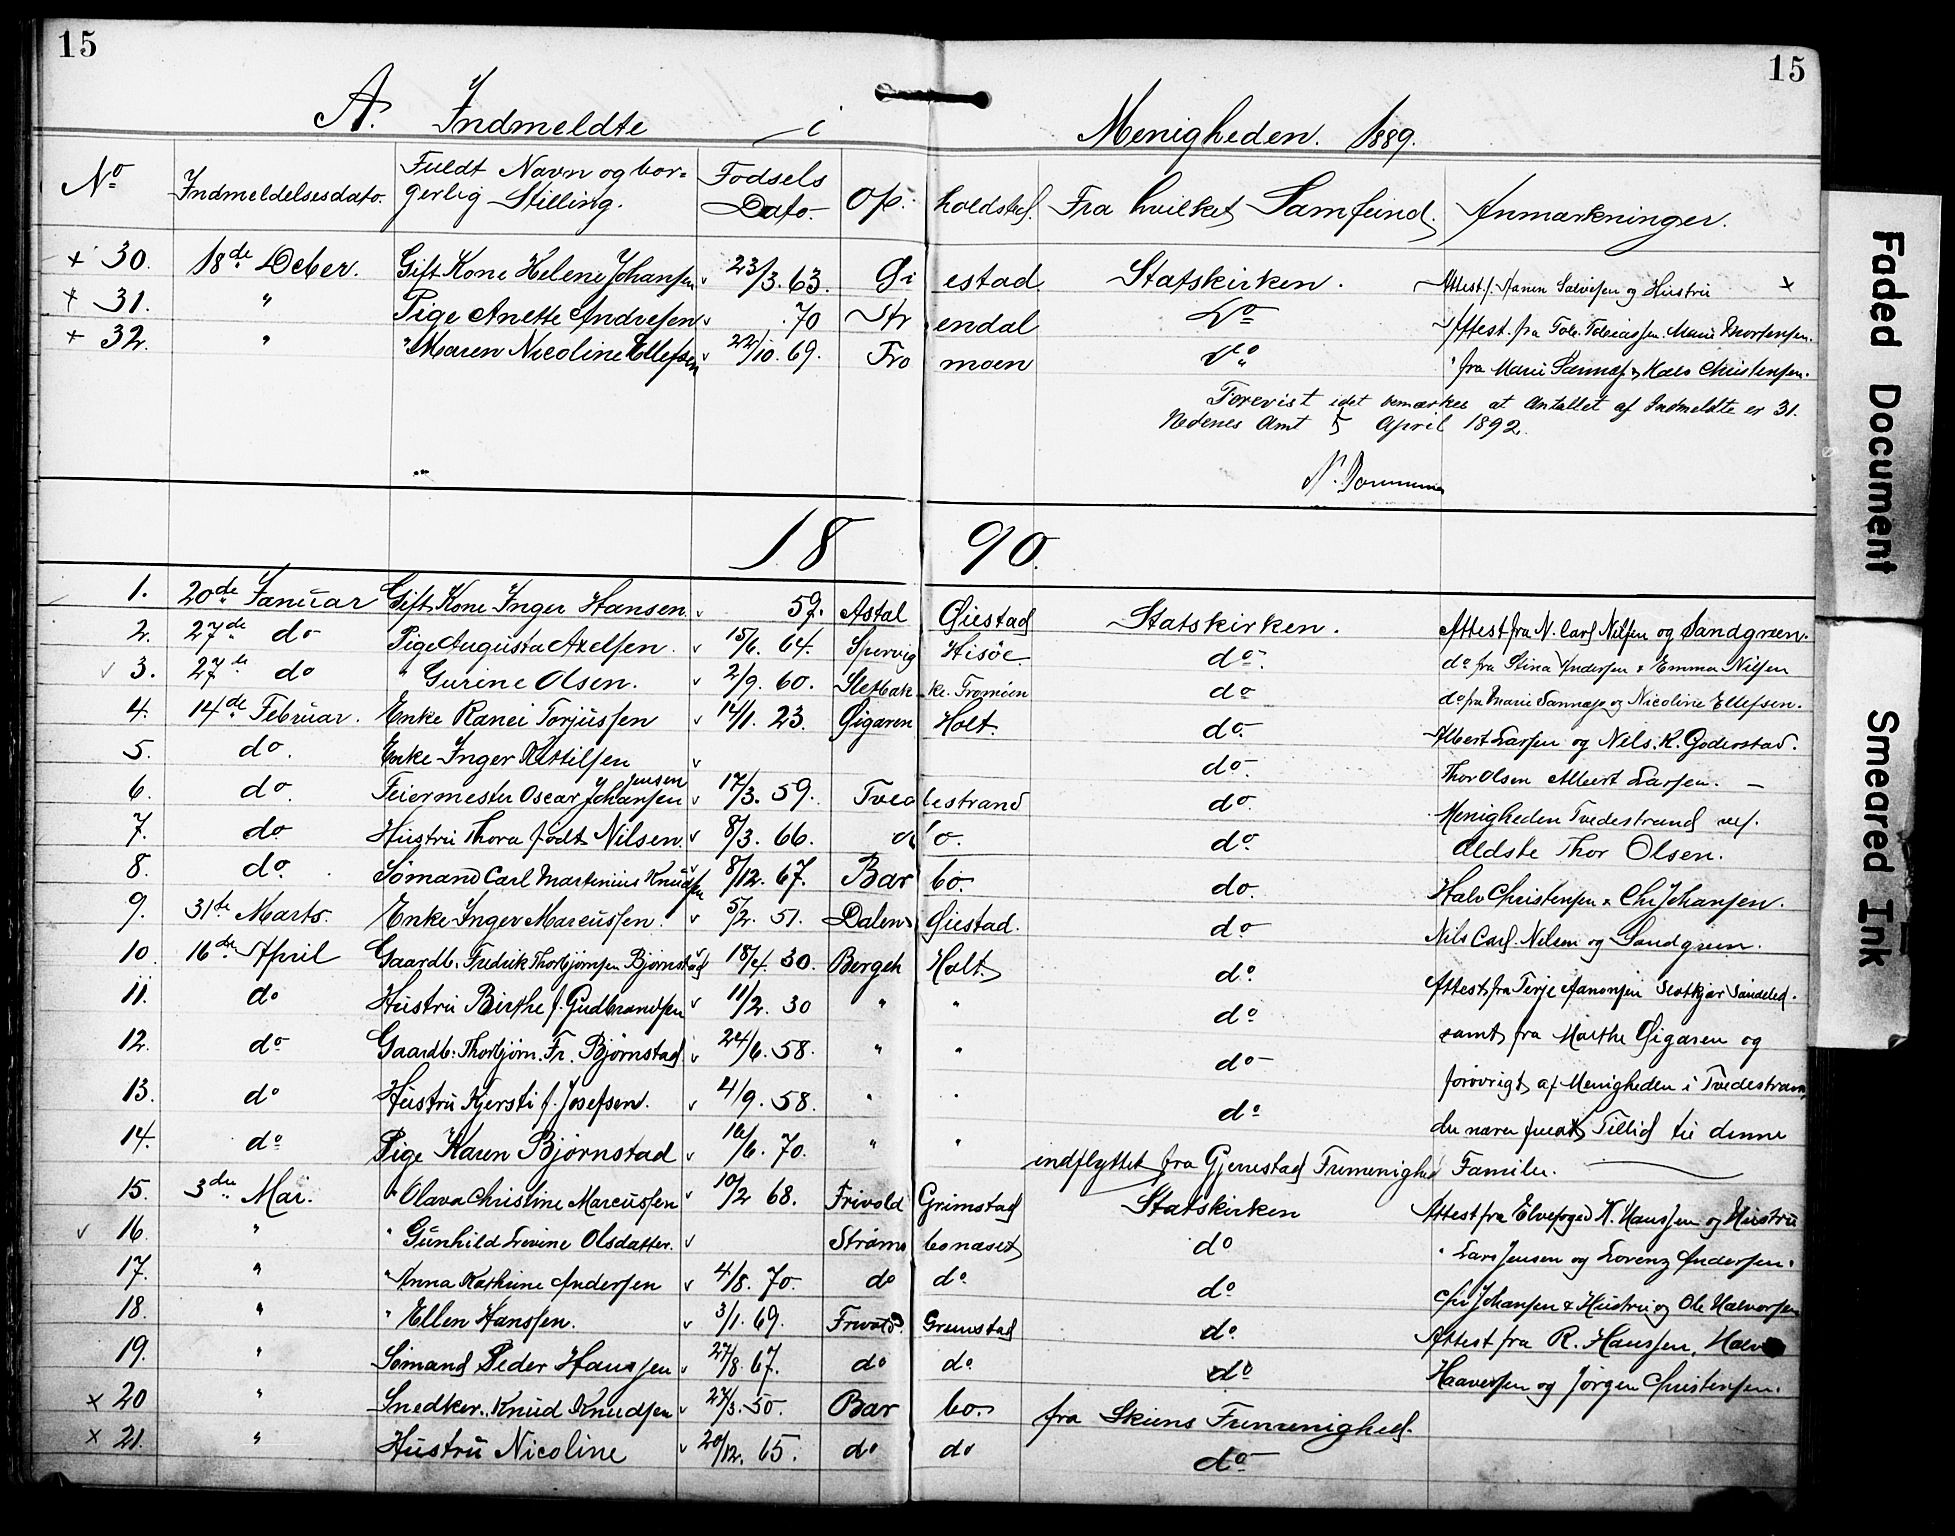 15 15
A. Indmeldte i Menigheden. 1889.
No Indmeldelsesdato. Fuldt Navn og bor= gerlig Stilling. Fodsels Dato. Op: holdsted. Fra hvilket Samfund. Anmærkninger.
+ 30. 18de Deber. Gift Kone Helene Johansen v 23/3. 63. Gi estad Statskirken. Attest f. Aanen Salvesen og Hustru x
+ 31. " Pige Anette Andresen v .70 Str endal Do Attest. fra Tob. Tobiassen. Marie Mortensen.
+ 32. " " Maren Nicoline Ellefsen v 22/10. 69. Tro moen Do " fra Marie Sannæs & Halv Christensen.
Forevist idet bemærkes at Antallet af Indmeldte er 31.
Nedenes Amt 5 April 1892.
18 90.
1. 20de Januar Gift Kone Inger Hansen. v 59. Astal Giestad Statskirken. Attest fra N. Carl Nilsen og Sandgreen.
2. 27de do Pige Augusta Axelsen. v 15/6. 64. Spervig Hisöe do. do fra Stina Andersen & Emma Nilsen
v 3. 27de do " Gurine Olsen. v 2/9. 60. Sletbak ke. Tromöen do do fra Marie Sannæs og Nicoline Ellefsen.
4. 14de Februar. Enke Ranei Torjussen v 14/1. 23. Gigaren Holt. do. Albert Larsen og Nils. K. Goderstad.
5. do. Enke Inger Kittilsen v do. Thor Olsen Albert Larsen. —
6. do. Feiermester Oscar Johansen Jensen v 17/3. 59. Tved estrand do. Menigheden Tvedestrand ved.
7. do Hustru Thora født Nilsen. v 8/3. 66. d o. do. Ældste Thor Olsen.
8. do. Sømand Carl Martinius Knudsen v 8/12. 67. Bar bo. do. Halv Christensen & Chr Johansen.
9. 31te Marts. Enke Inger Marcussen. v 5/2. 51. Dalen Giestad. do Nils Carl. Nilsen og Sandgreen.
10. 16de April Gaardb. Fredrik Thorbjørnsen Bjørnstad v 18/4. 30. Bergeh Holt. do. Attest fra Terje Aanonsen Slotkjær Søndeled.
11. do Hustru Birthe f. Gudbrandsen v 11/2. 30 " " do samt fra Marthe Gigaren og
12. do Gaardb: Thorbjörn. Fr. Bjørnstad. v 24/6. 58. " " do forøvrigt af Menigheden i Tvedestrand,
13. do Hustru Kjersti f. Josefsen. v 4/9. 58. " " do der nærer fuld Tillid til denne
14. do Pige Karen Bjørnstad v 16/6. 70. " " indflyttet fra Gjerrestad Frimenighed Familie.
15. 3die Mai. " Olava Christine Marcussen v 10/2 68. Frivold Grimstad Statskirken Attest fra Elvefoged N. Hanssen og Hustru
v 16. " " Gunhild Levine Olsdatter. v Strøms bonæset do " Lars Jensen og Lorenz Andersen.
17. " " Anna Kathrine Andersen v 4/8. 70. do do. do Chr Johansen & Hustru og Ole Halvorsen
18. " " Ellen Hanssen. v 3/1. 69. Frivold. Grimstad do. Attest fra R. Hanssen, Halv
19. " Sømand Peder Hanssen v 27/8. 67. do do. do Haaversen og Jørgen Christensen.
x 20 " Snedker. Knud Knudsen v 27/3. 50. Bar bo. fra Skiens Frimenighed.
x 21. " Hustru Nicoline v 20/12. 65. do do do
Faded Document
Smeared Ink